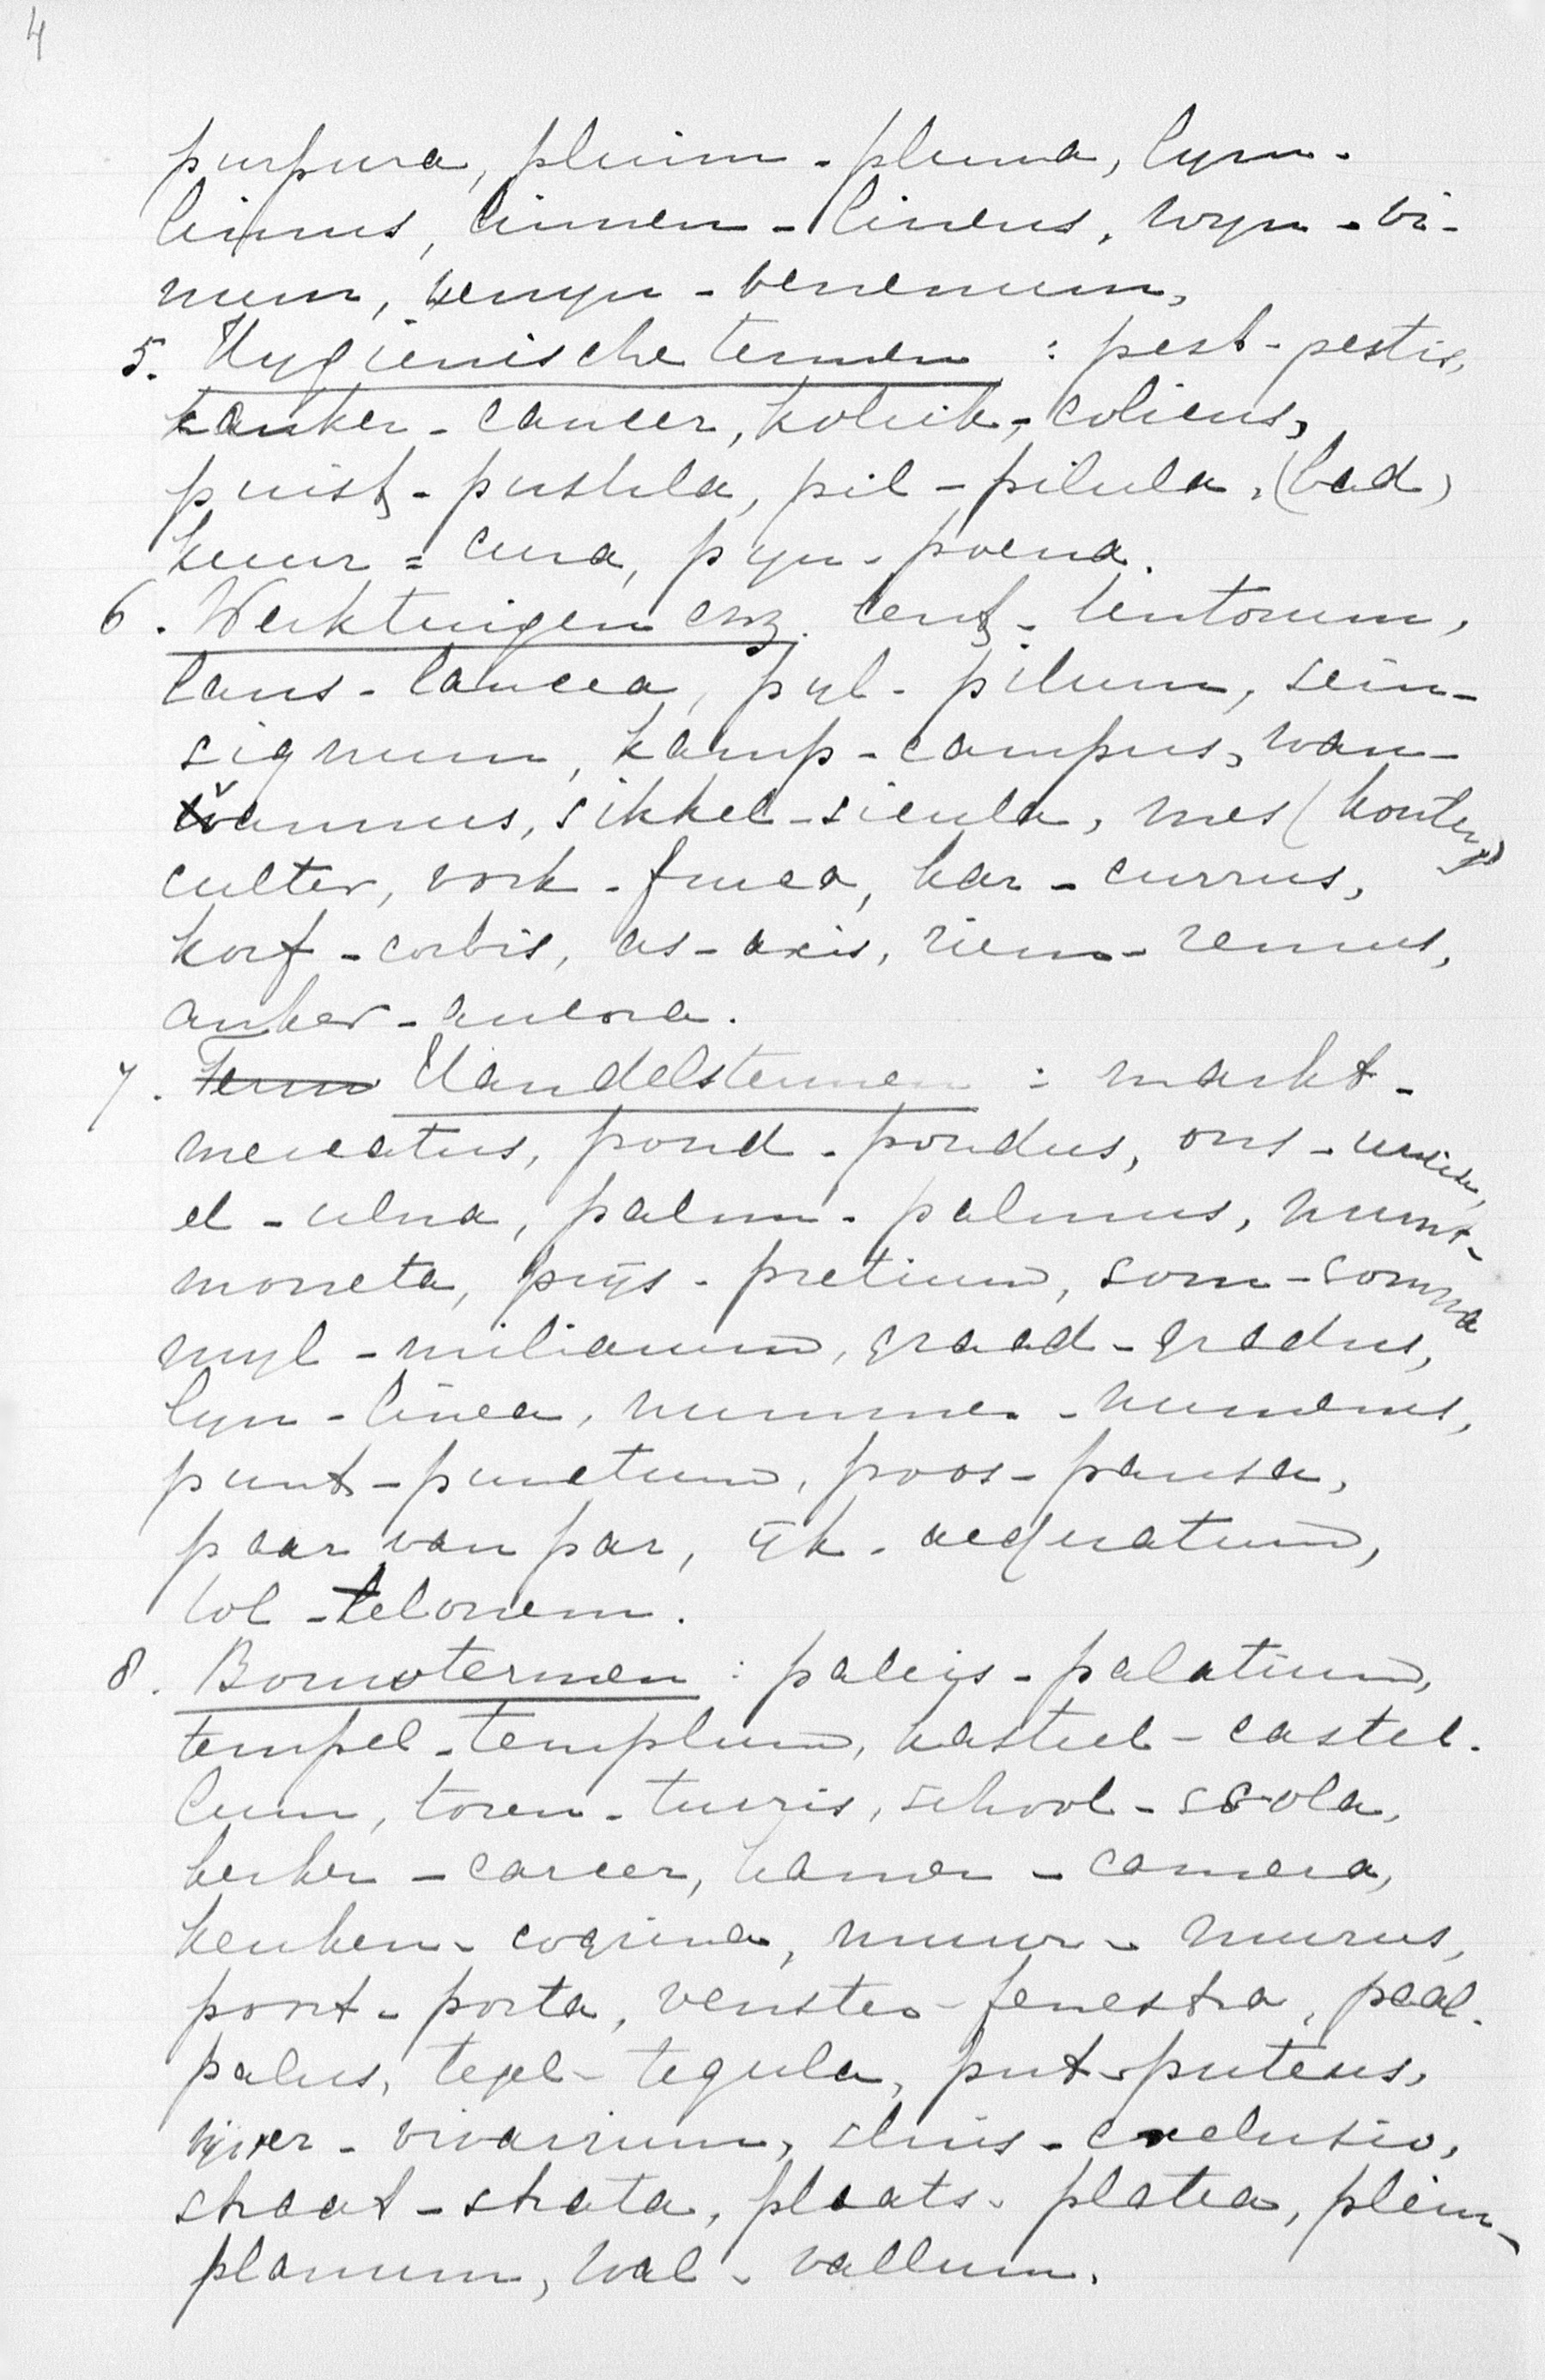 4
purpura, pluim - pluma, lym -
limus, linnen - lineus, wyn - vi-
num, venyn - venenum,
5. Hygienische termen : pest - pestis,
kanker - cancer, koliek - colicus,
puist - pustula, pil - pilula, (bad)
kuur = cura, pyn - poena.
6. Werktuigen enz. tent - tentorum,
lans - lancea, pyl - pilum, sein -
signum, kamp - campus, wan -
vannus, sikkel - sicula, mes (kouter)
culter, vork - furca, kar - currus,
korf - corbis, as - axis, riem - remus,
anker - ancora.
7. Term Handelstermen : markt -
mercatus, pond - pondus, ons - uncia,
el - ulna, palm - palmus, munt -
moneta, prijs - pretium, som - somma
myl - miliarum, graad - gradus,
lyn - linea, nummer - numerus,
punt - punctum, poos - pausa,
paar van par, ijk - aequatum,
tol - telonem.
8. Bouwtermen : paleis - palatium,
tempel - templum, kasteel - castel-
lum, toren - turris, school - scola,
kerker - carcer, kamer - camera,
keuken - coquina, muur - murus,
poort - porta, venster - fenestra, paal -
palus, tegel - tegula, put - puteus,
vijver - vivarium, sluis - exclusio,
straat - strata, plaats - platea, plein -
planum, wal - vallum.